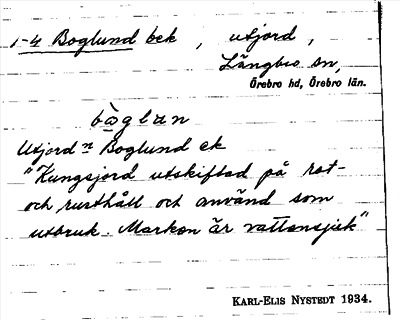 1-4 Boglund bek , utjord ,
Längbro sn,
Örebro hd, Örebro län.
bòglan
Utjordⁿ Boglund ek
"Kungsjord utskiftad på rot-
och rusthåll och använd som
utbruk. Marken är vattensjuk"
KARL-ELIS NYSTEDT 1934.